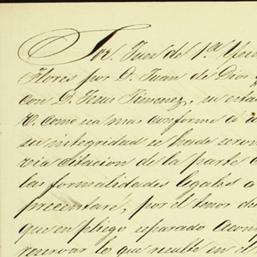 Por Juez de 1ª
Flores por D. Juan de Dios
con D. Jesus Jimenez, se
V. como sea mas conforme á
su integridad se ha de
via citacion de la parte
las formalidades legales a
presentaré, por el tenor de
que en pliego separado
reservar lo que resulte en el